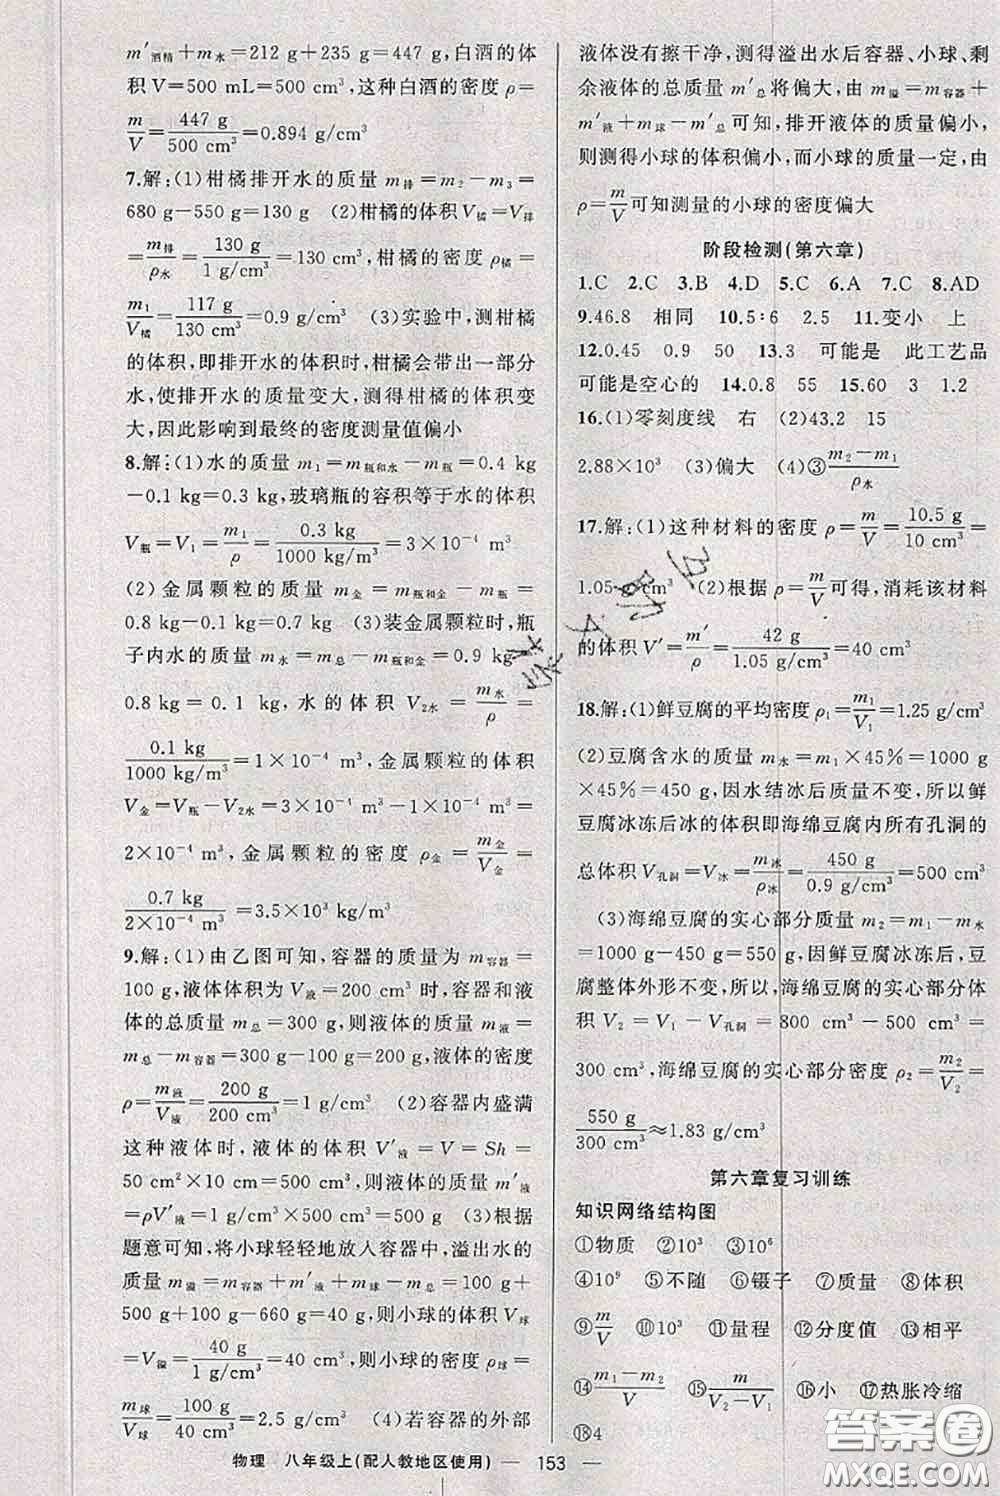 m′酒精+m水=212 g+235 g=447 g,白酒的体
积 V=500 mL=500 cm³,这种白酒的密度 ρ=
m/V=447 g/500 cm³=0.894 g/cm³
7.解:(1)柑橘排开水的质量 m排=m₂-m₃=
680 g-550 g=130 g (2)柑橘的体积 V橘=V排
=m排/ρ水=130 g/1 g/cm³=130 cm³,柑橘的密度 ρ橘=
m₁/V橘=117 g/130 cm³=0.9 g/cm³ (3)实验中,测柑橘
的体积,即排开水的体积时,柑橘会带出一部分
水,使排开水的质量变大,测得柑橘的体积变
大,因此影响到最终的密度测量值偏小
8.解:(1)水的质量 m₁=m瓶和水-m瓶=0.4 kg
-0.1 kg=0.3 kg,玻璃瓶的容积等于水的体积
V瓶=V₁=m₁/ρ=0.3 kg/1000 kg/m³=3×10⁻⁴ m³
(2)金属颗粒的质量 m金=m瓶和金-m瓶=
0.8 kg-0.1 kg=0.7 kg (3)装金属颗粒时,瓶
子内水的质量 m水=m总-m瓶和金=0.9 kg-
0.8 kg=0.1 kg,水的体积 V₂水=m水/ρ=
0.1 kg/1000 kg/m³=1×10⁻⁴ m³,金属颗粒的体积
V金=V瓶-V₂水=3×10⁻⁴ m³-1×10⁻⁴ m³=
2×10⁻⁴ m³,金属颗粒的密度 ρ金=m金/V金=
0.7 kg/2×10⁻⁴ m³=3.5×10³ kg/m³
9.解:(1)由乙图可知,容器的质量为 m容器=
100 g,液体体积为 V液=200 cm³ 时,容器和液
体的总质量 m总=300 g,则液体的质量 m液=
m总-m容器=300 g-100 g=200 g,液体的密度
ρ=m液/V液=200 g/200 cm³=1 g/cm³ (2)容器内盛满
这种液体时,液体的体积 V′液=V=Sh=
50 cm²×10 cm=500 cm³,液体的质量 m′液
=ρV′液=1 g/cm³×500 cm³=500 g (3)根据
题意可知,将小球轻轻地放入容器中,溢出水的
质量 m溢=m容器+m′液+m球-m总=100 g+
500 g+100 g-660 g=40 g,则小球的体积 V球
=V溢=40 g/1 g/cm³=40 cm³,则小球的密度 ρ球=
m球/V球=100 g/40 cm³=2.5 g/cm³ (4)若容器的外部
液体没有擦干净,测得溢出水后容器、小球、剩
余液体的总质量 m′总将偏大,由 m溢=m容器+
m′液+m球-m′总可知,排开液体的质量偏小,
则测得小球的体积偏小,而小球的质量一定,由
ρ=m/V可知测量的小球的密度偏大
阶段检测(第六章)
1.C 2.C 3.B 4.D 5.C 6.A 7.C 8.AD
9.46.8 相同 10.5∶6 2.5 11.变小 上
12.0.45 0.9 50 13.3 可能是 此工艺品
可能是空心的 14.0.8 55 15.60 3 1.2
16.(1)零刻度线 右 (2)43.2 15
2.88×10³ (3)偏大 (4)③m₂-m₁/ρ水
17.解:(1)这种材料的密度 ρ=m/V=10.5 g/10 cm³=
1.05 g/cm³ (2)根据 ρ=m/V可得,消耗该材料
的体积 V′=m′/ρ=42 g/1.05 g/cm³=40 cm³
18.解:(1)鲜豆腐的平均密度 ρ₁=m₁/V₁=1.25 g/cm³
(2)豆腐含水的质量 m水=m₁×45%=1000 g
×45%=450 g,因水结冰后质量不变,所以鲜
豆腐冰冻后冰的体积即海绵豆腐内所有孔洞的
总体积 V孔洞=V冰=m冰/ρ冰=450 g/0.9 g/cm³=500 cm³
(3)海绵豆腐的实心部分质量 m₂=m₁-m水
=1000 g-450 g=550 g,因鲜豆腐冰冻后,豆
腐整体外形不变,所以,海绵豆腐的实心部分体
积 V₂=V₁-V孔洞=800 cm³-500 cm³=
300 cm³,海绵豆腐的实心部分密度 ρ₂=m₂/V₂=
550 g/300 cm³≈1.83 g/cm³
第六章复习训练
知识网络结构图
①物质 ②10³ ③10⁶
④10⁹ ⑤不随 ⑥镊子 ⑦质量 ⑧体积
⑨m/V ⑩10³ ⑪量程 ⑫分度值 ⑬相平
⑭m₁-m₂/V ⑮m/V₂-V₁ ⑯小 ⑰热胀冷缩
⑱4
物理 八年级上(配人教地区使用) — 153 —
答案圈
MXQE.COM